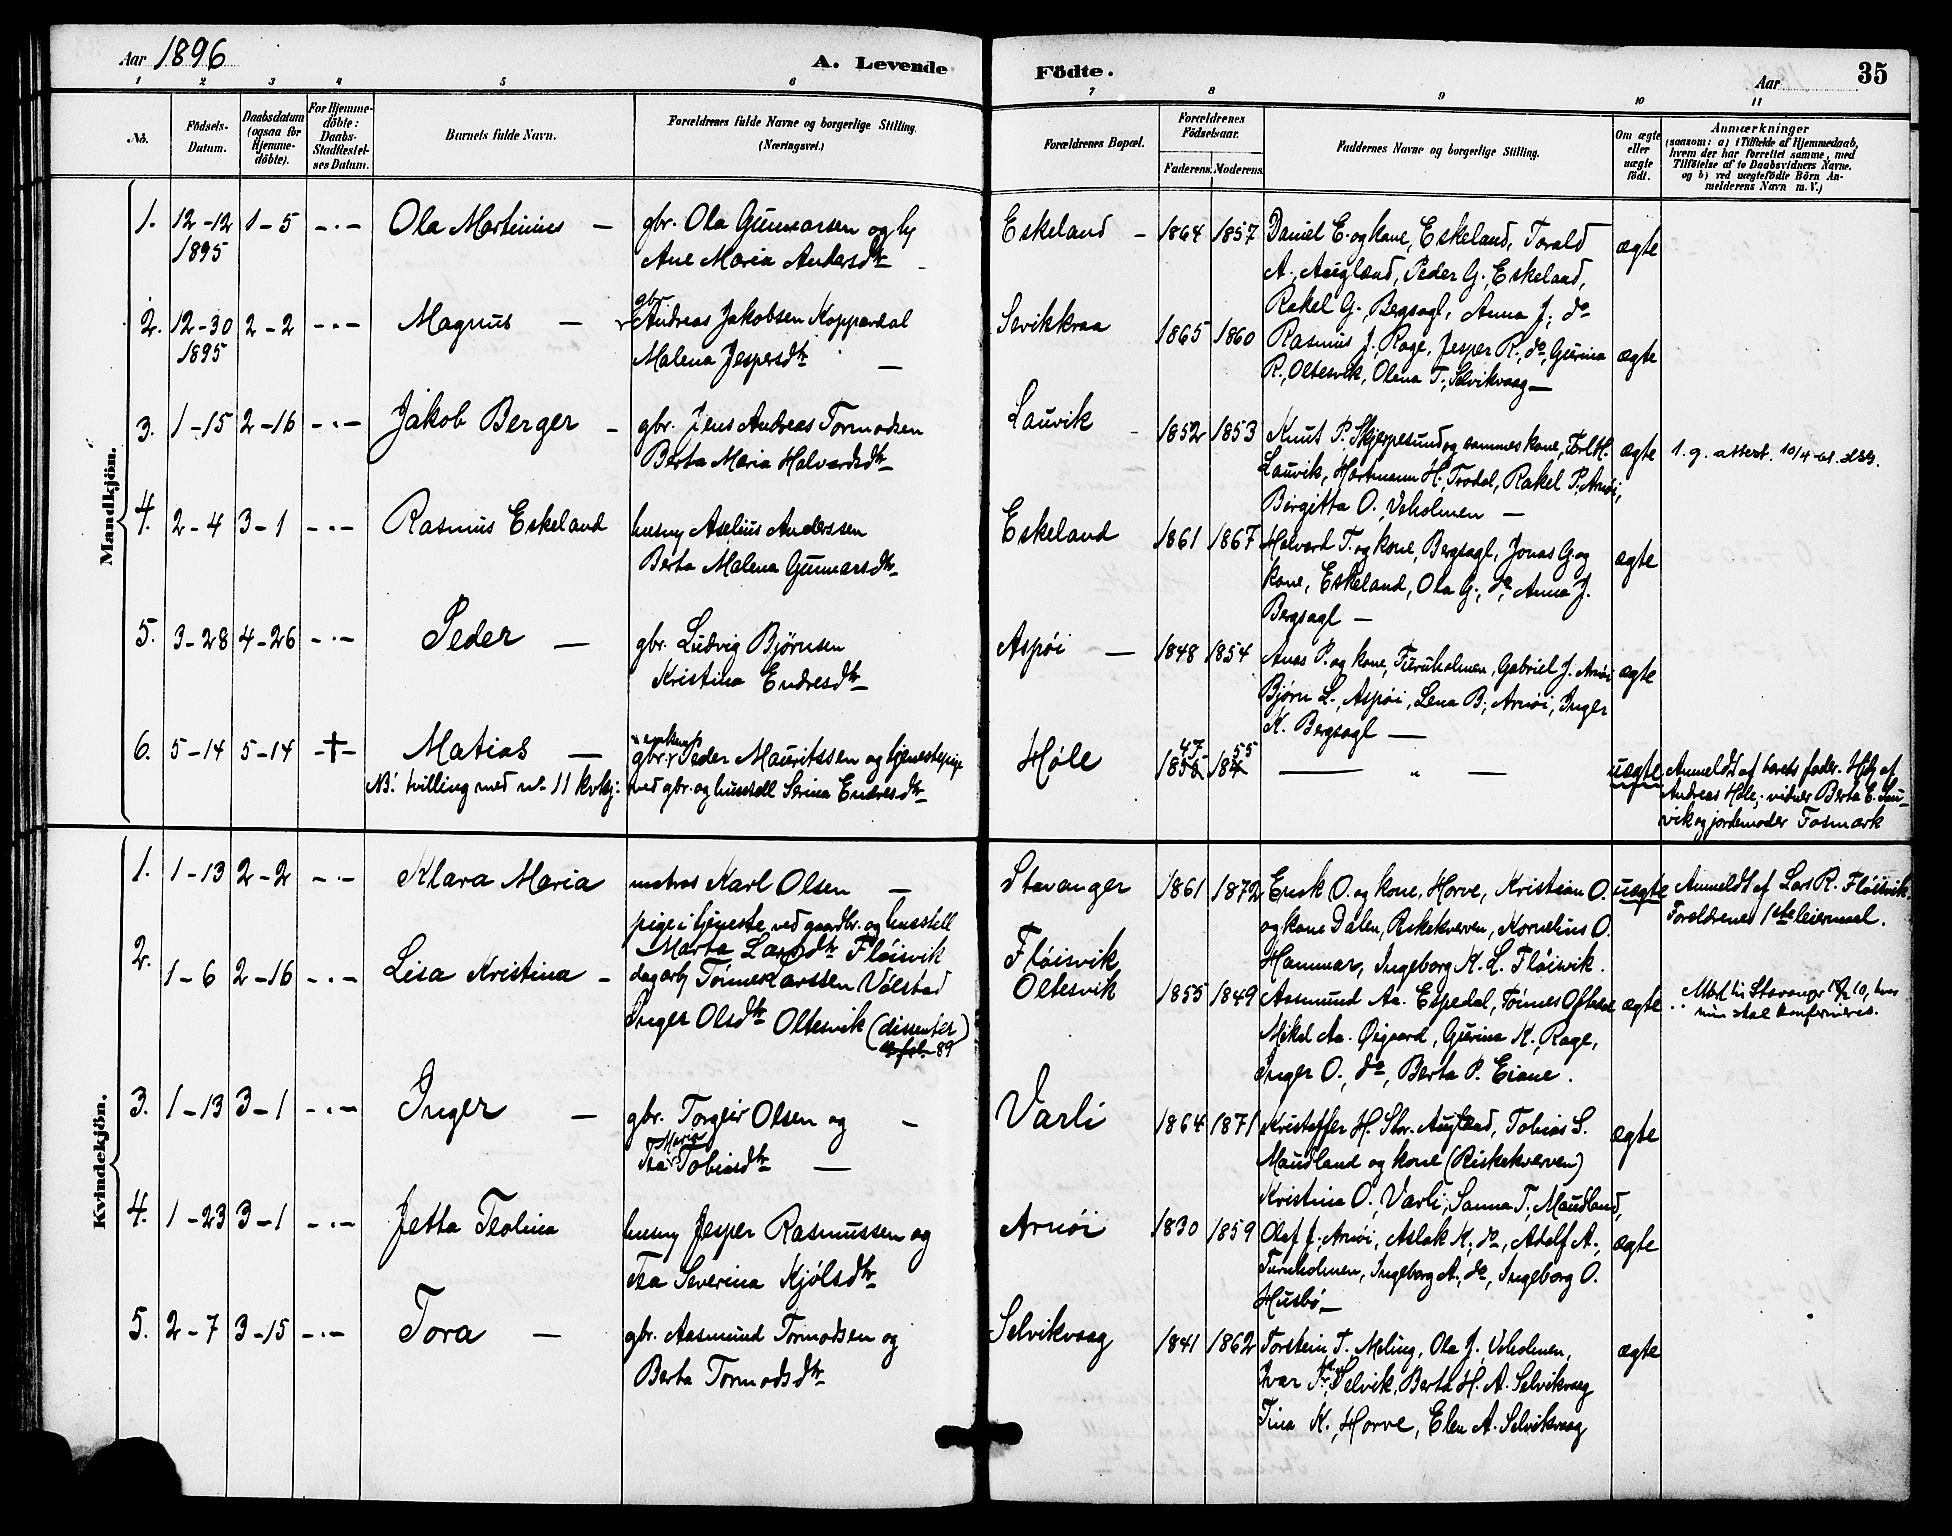 Aar 1896
A. Levende Födte.
Aar
35
1 2 3 4 5 6 7 8 9 10 11
No.
Födsels-Datum.
Daabsdatum (ogsaa for Hjemme-döbte).
For Hjemme-döbte: Daabs-Stadfæstel-ses Datum.
Barnets fulde Navn.
Forældrenes fulde Navne og borgerlige Stilling. (Næringsvei.)
Forældrenes Bopæl.
Forældrenes Födselsaar.
Faderens. Moderens.
Faddernes Navne og borgerlige Stilling.
Om ægte eller uægte födt.
Anmærkninger
(saasom: a) i Tilfælde af Hjemmedaab,
hvem der har forrettet samme, med
Tilföielse af to Daabsvidners Navne.
og b) ved uægtefödte Börn An-
melderens Navn m. V.)
Mandkjön.
1. 12-12 1895 1-5 -·- Ola Martinius — gbr. Ola Gunnarsen og h
Ane Maria Andersdtr
Eskeland - 1864 1857 Daniel E. og kone, Eskeland, Torald
A., Augland, Peder G., Eskeland,
Rakel G., Bergsagl, Anna J., do
ægte
2. 12-30 1895 2-2 -·- Magnus — gbr. Andreas Jakobsen Koppardal
Malena Jespersdtr —
Sevikkraa 1865 1860 Rasmus J., Rage, Jesper R., do, Gurina
R., Oltesvik, Olena T., Selvikvaag —
ægte
3. 1-15 2-16 -·- Jakob Berger - gbr. Jens Andreas Tormodsen
Berta Maria Halvardsdtr
Lauvik - 1852 1853 Knut P. Skjerpesund og sammes kone,
Lauvik, Hartmann H., Trodal, Rakel P. Arnøi,
Birgitta O., Veholmen —
ægte 1. g. attest. 10/4
4. 2-4 3-1 -·- Rasmus Eskeland husmy Aselius Anderssen
Berta Malena Gunnarsdtr
Eskeland 1861 1867 Halvard T. og kone, Bergsagl, Jonas G. og
kone, Eskeland, Ola G., do, Anna J.
Bergsagl —
ægte
5. 3-28 4-26 -·- Peder — gbr. Ludvig Bjørnsen
Kristina Endresdtr
Aspøi — 1848 1854 Anas P. og kone, Furuholmen, Gabriel J. Arnøi
Bjørn L., Aspøi, Lena B., Arnøi, Inger
K. Bergsagl —
ægte
6. 5-14 5-14 -†- Matias — gbr. Peder Mauritssen og tjenestepige
NB! tvilling med no. 11 kvkj: ved gbr. og husstell Serina Endresdtr
Høle 47 1858 55 184 — " — uægte
Anmeldt af barnets fader. Hdb. af
Andreas Høle; vidner Berta E. Lau-
vik og jordemoder Fosmark
Kvindekjön.
1. 1-13 2-2 -·- Klara Maria matros Karl Olsen —
pige i tjeneste ved gaardbr. og husstell
Marta Larsdtr Fløisvik
Stavanger
Fløisvik
1861 1872 Enok O. og kone, Horve, Kristian O.
og kone Dalen, Riskekverven, Kornelius O.
Hammar, Ingeborg K. L. Fløisvik.
uægte Anmeldt af Lars R. Fløisvik.
Forældrenes 1ste leiermaal.
2. 1-6 2-16 -·- Lisa Kristina - dagarb. Tønnes Larssen Vølstad
Inger Olsdtr Oltesvik (dissenter
89)
Oltesvik 1855 1849 Aasmund Aa. Espedal, Tønnes Oftedal
Mikel Aa. Øigaard, Gurina K., Rage,
Inger O., do, Berta P. Eiane.
ægte Attest til Stavanger 10, hvor
hun skal konfirmeres.
3. 1-13 3-1 -·- Inger — gbr. Torgeir Olsen og —
Maria
Tea Tobiasdtr —
Varli 1864 1871 Kristoffer H. Stor. Augland, Tobias S.
Maudland og kone (Riskekverven)
Kristina O., Varli, Sanna T., Maudland,
ægte
4. 1-23 3-1 -·- Jetta Teolina husmy Jesper Rasmussen og
Tea Severina Kjølsdtr
Arnøi 1830 1859 Olaf J., Arnøi, Aslak K., do, Adolf A.,
Furuholmen, Ingeborg A., do, Ingeborg O.
Husbø —
ægte
5. 2-7 3-15 -·- Tora — gbr. Aasmund Tormodsen og
Berta Tormodsdtr
Selvikvaag 1841 1862 Torstein T. Meling, Ola J., Veholmen,
Ivar Selvik, Berta H. A. Selvikvaag
Tina K., Horve, Elen A. Selvikvaag
ægte